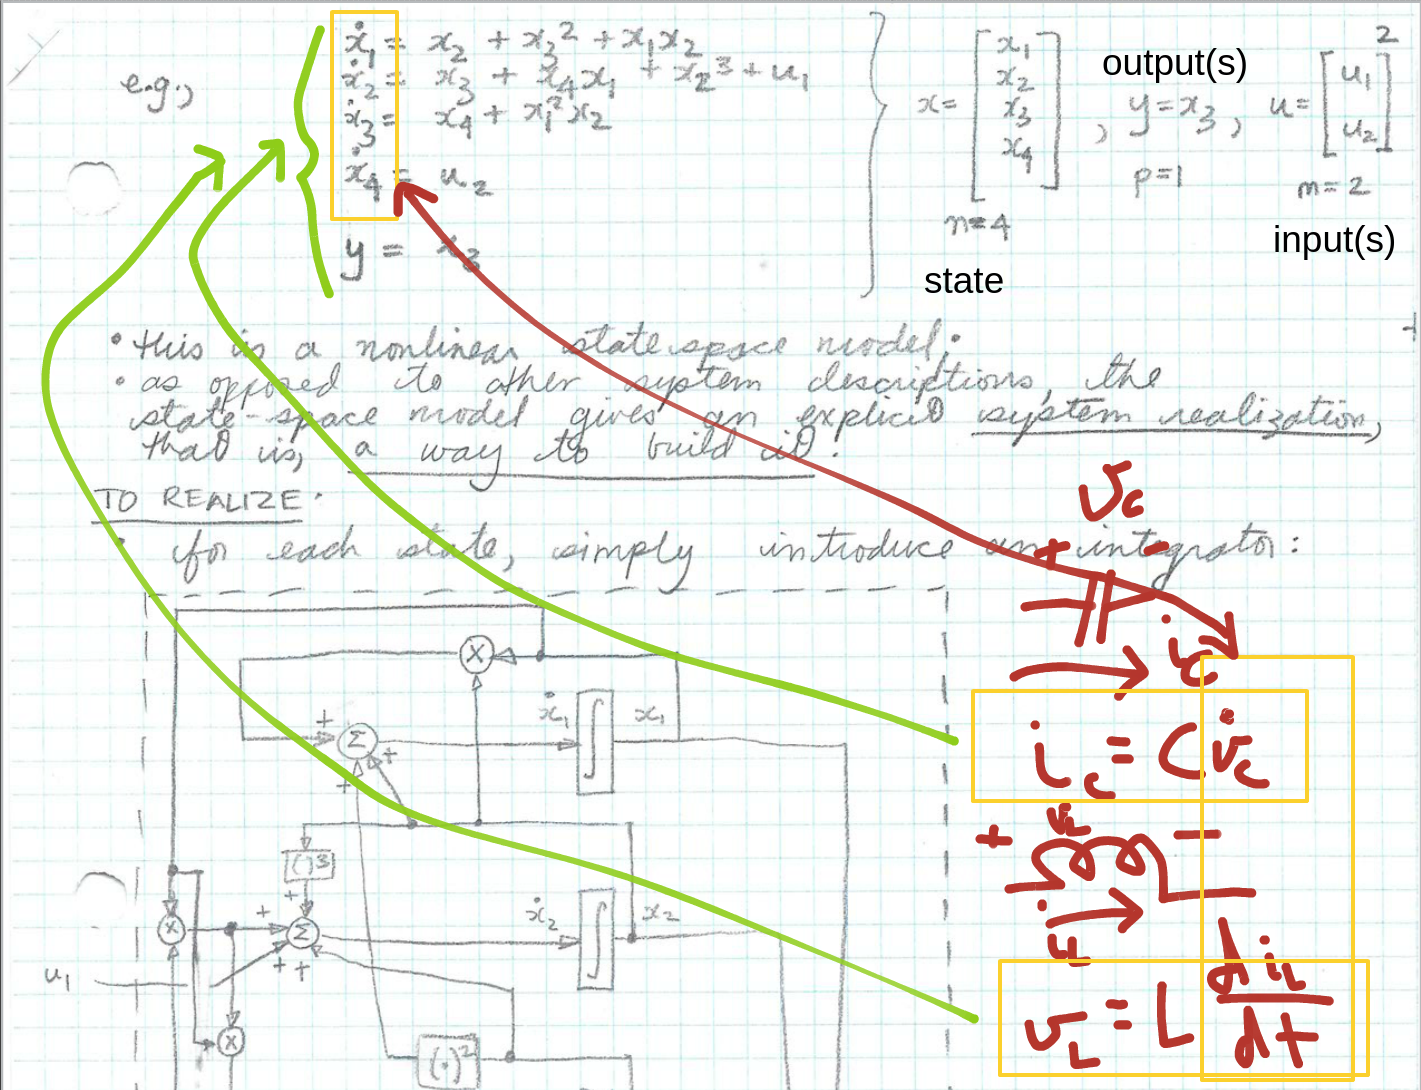 e.g.,
ẋ₁ = x₂ + x₃² + x₁x₂
ẋ₂ = x₃ + x₄x₁ + x₂³ + u₁
ẋ₃ = x₄ + x₁²x₂
ẋ₄ = u₂
y = x₃
x = [x₁ x₂ x₃ x₄], y = x₃, u = [u₁ u₂]
2
output(s)
n=4
p=1
m=2
state
input(s)
• this is a nonlinear state space model;
• as opposed to other system descriptions, the
state-space model gives an explicit system realization,
that is, a way to build it.
TO REALIZE.
• for each state, simply introduce an integrator:
v_c
+ −
i_c
i_c = C v̇_c
+ v_L −
i_L
v_L = L di_L/dt
X
+ Σ + +
ẋ₁ ∫ x₁
( )³
X + Σ + + +
ẋ₂ ∫ x₂
u₁
X
(·)²